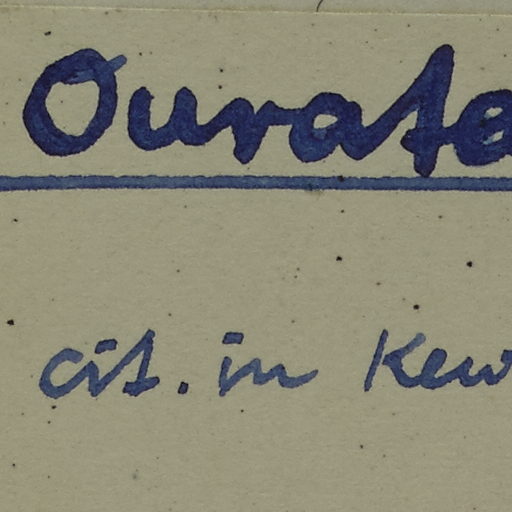 Ourate
cit. in Kew